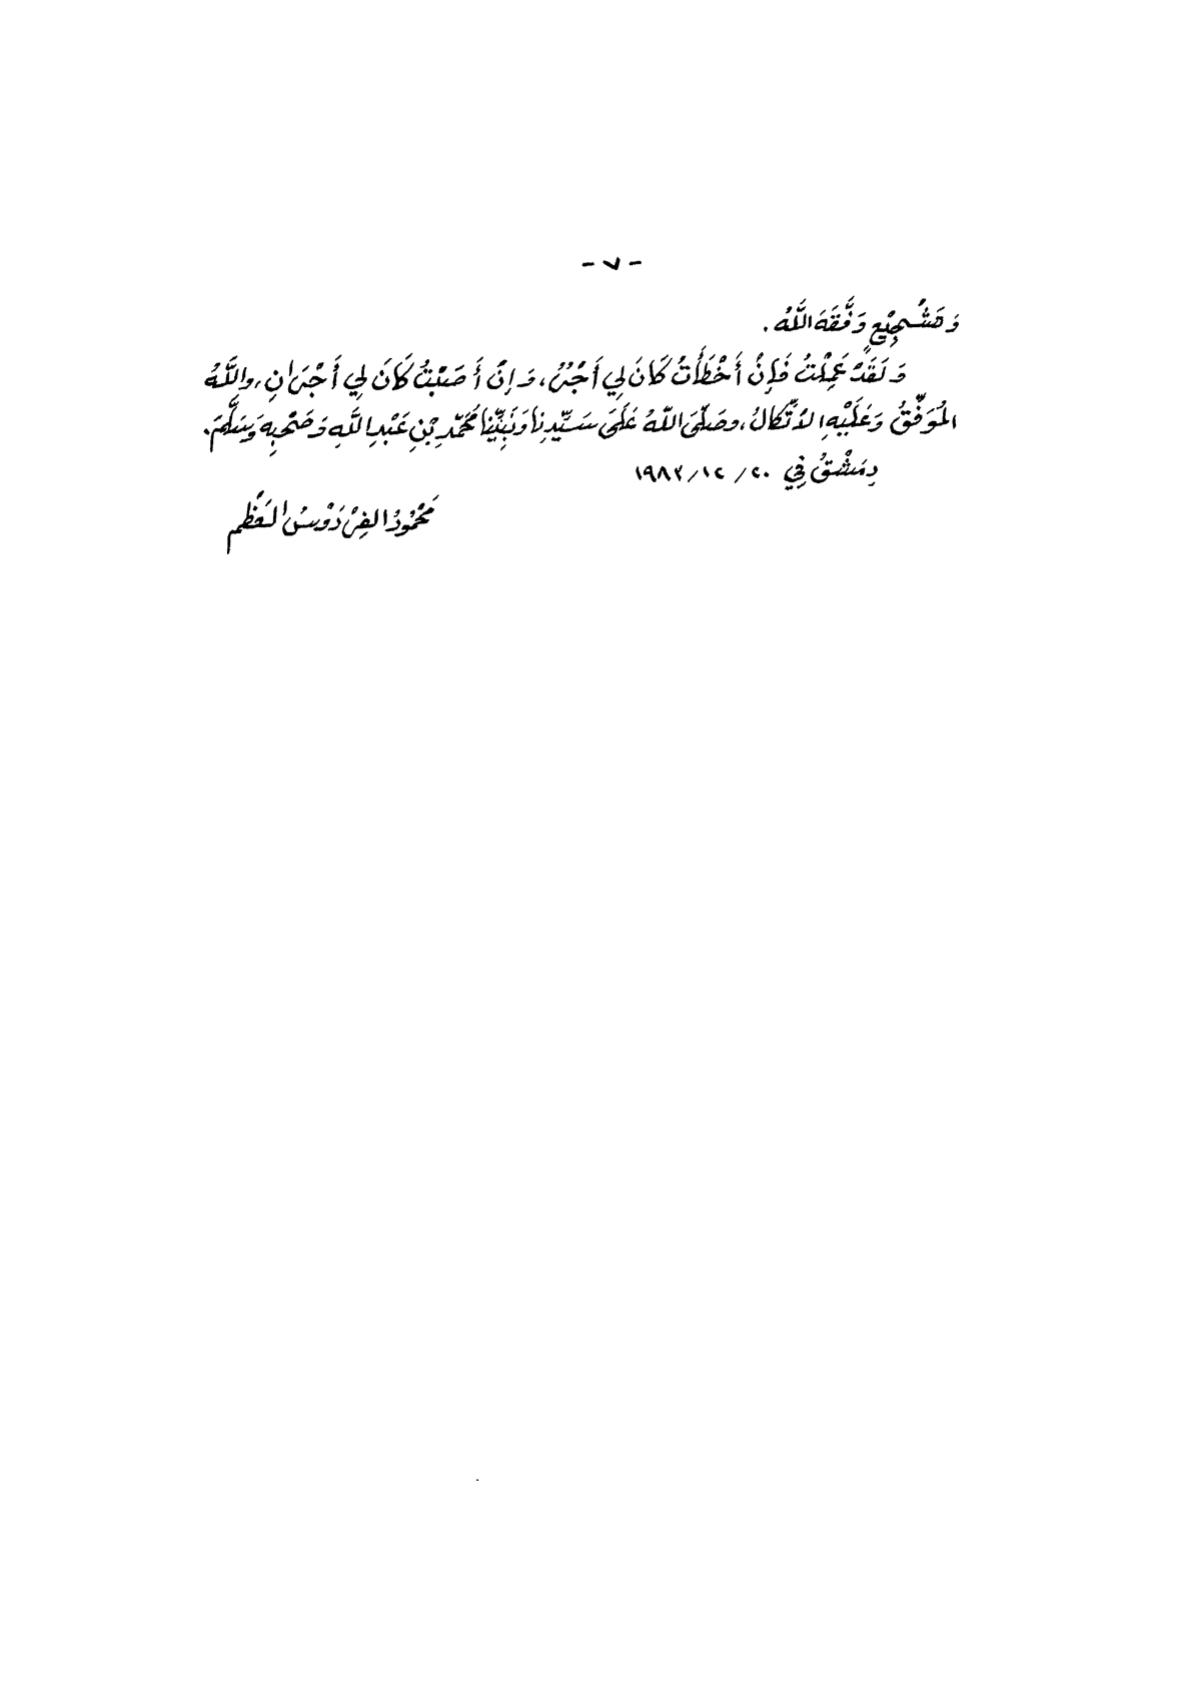 - ٧ -
وَتَشْجِيْعٍ وَفَّقَهُ اللَّهُ .
وَلَقَدْ عَمِلْتُ فَإِنْ أَخْطَأْتُ كَانَ لِي أَجْرٌ، وَإِنْ أَصَبْتُ كَانَ لِي أَجْرَانِ، واللَّهُ
المُوَفِّقُ وَعَلَيْهِ الاتِّكَالُ، وصَلّى اللّهُ عَلَى سَيِّدِنَا وَنَبِيِّنَا مُحَمّدِ بْنِ عَبْدِ اللَّهِ وَصَحْبِهِ وَسَلَّمَ.
دِمَشْقُ فِي ٢٠/١٢/١٩٨٢
مَحْمُودُ الفِرْدَوْسِ العَظْم